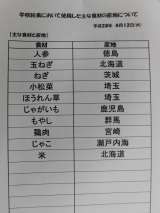 学校給食において使用した主な食材の産地について
平成29年 4月12日(水)
【主な食材と産地】
食材 産地
人参 徳島
玉ねぎ 北海道
ねぎ 茨城
小松菜 埼玉
ほうれん草 埼玉
じゃがいも 鹿児島
もやし 群馬
鶏肉 宮崎
じゃこ 瀬戸内海
米 北海道